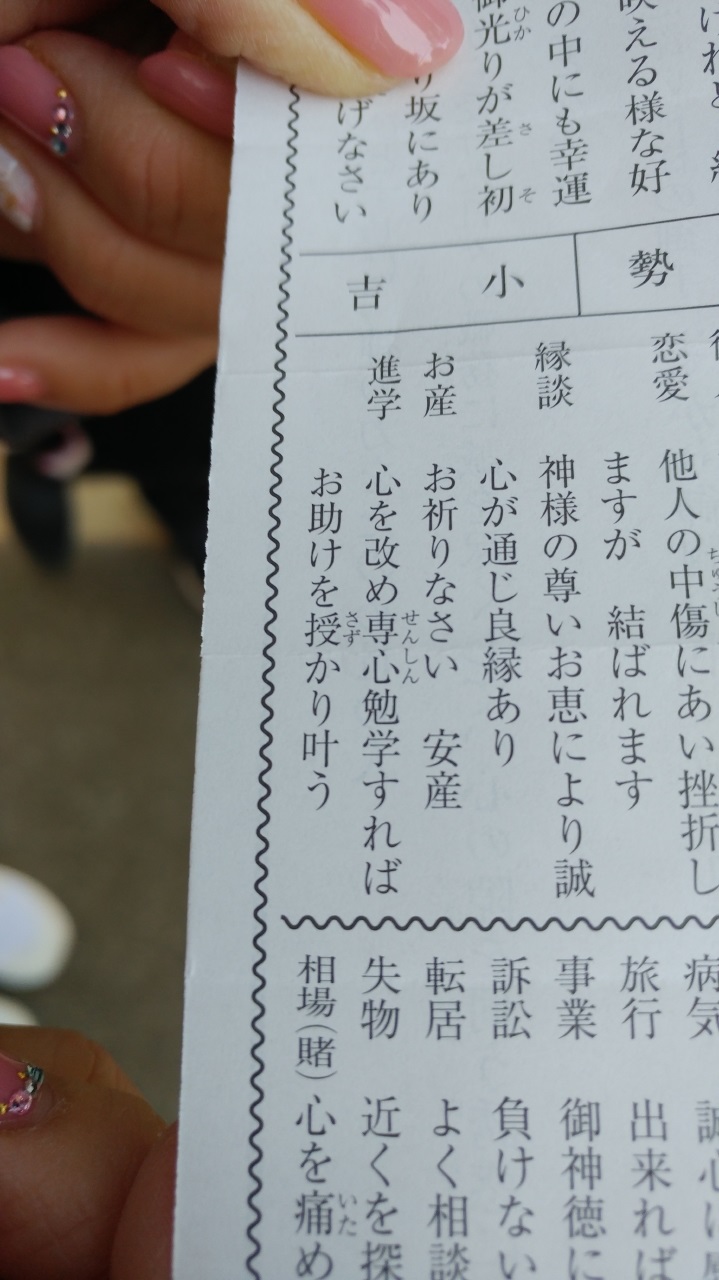 映える様な好
の中にも幸運
御光りが差し初
ひか
さ
そ
り坂にあり
げなさい
勢
小吉
恋愛
他人の中傷にあい挫折し
ますが 結ばれます
縁談
神様の尊いお恵により誠
心が通じ良縁あり
お産
お祈りなさい 安産
進学
心を改め専心勉学すれば
せんしん
お助けを授かり叶う
さず
病気
旅行 出来れば
事業 御神徳に
訴訟 負けない
転居 よく相談
失物 近くを探
相場(賭) 心を痛め
いた